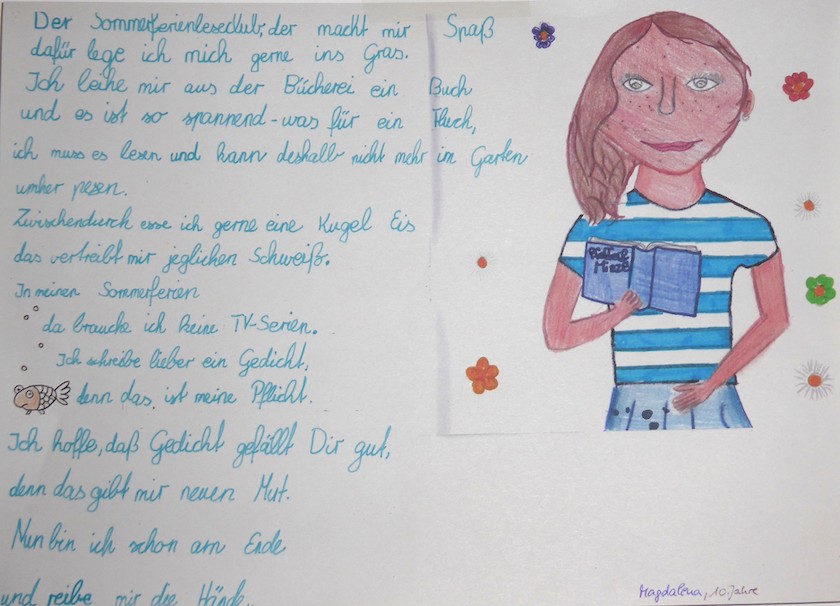 Der Sommerferienleseclub, der macht mir Spaß
dafür lege ich mich gerne ins Gras.
Ich leihe mir aus der Bücherei ein Buch
und es ist so spannend - was für ein Fluch,
ich muss es lesen und kann deshalb nicht mehr im Garten
umher pesen.
Zwischendurch esse ich gerne eine Kugel Eis
das vertreibt mir jeglichen Schweiß.
In meinen Sommerferien
da brauche ich keine TV-Serien.
Ich schreibe lieber ein Gedicht,
denn das ist meine Pflicht.
Ich hoffe, daß Gedicht gefällt Dir gut,
denn das gibt mir neuen Mut.
Nun bin ich schon am Ende
und reibe mir die Hände..
Magdalena, 10. Jahre